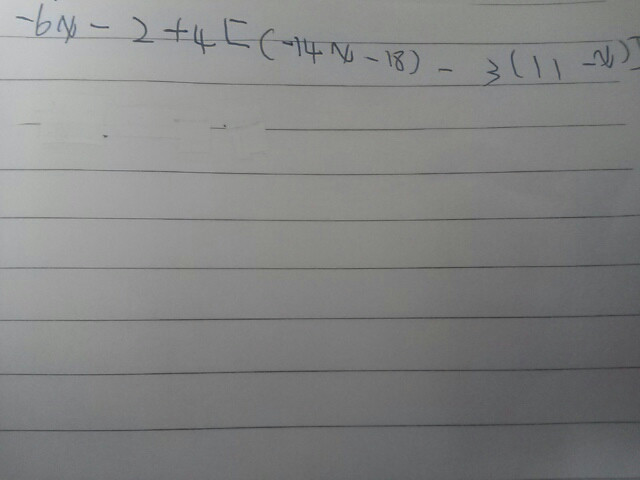 -6x - 2 + 4 [(-14x - 18) - 3(11 - x)]